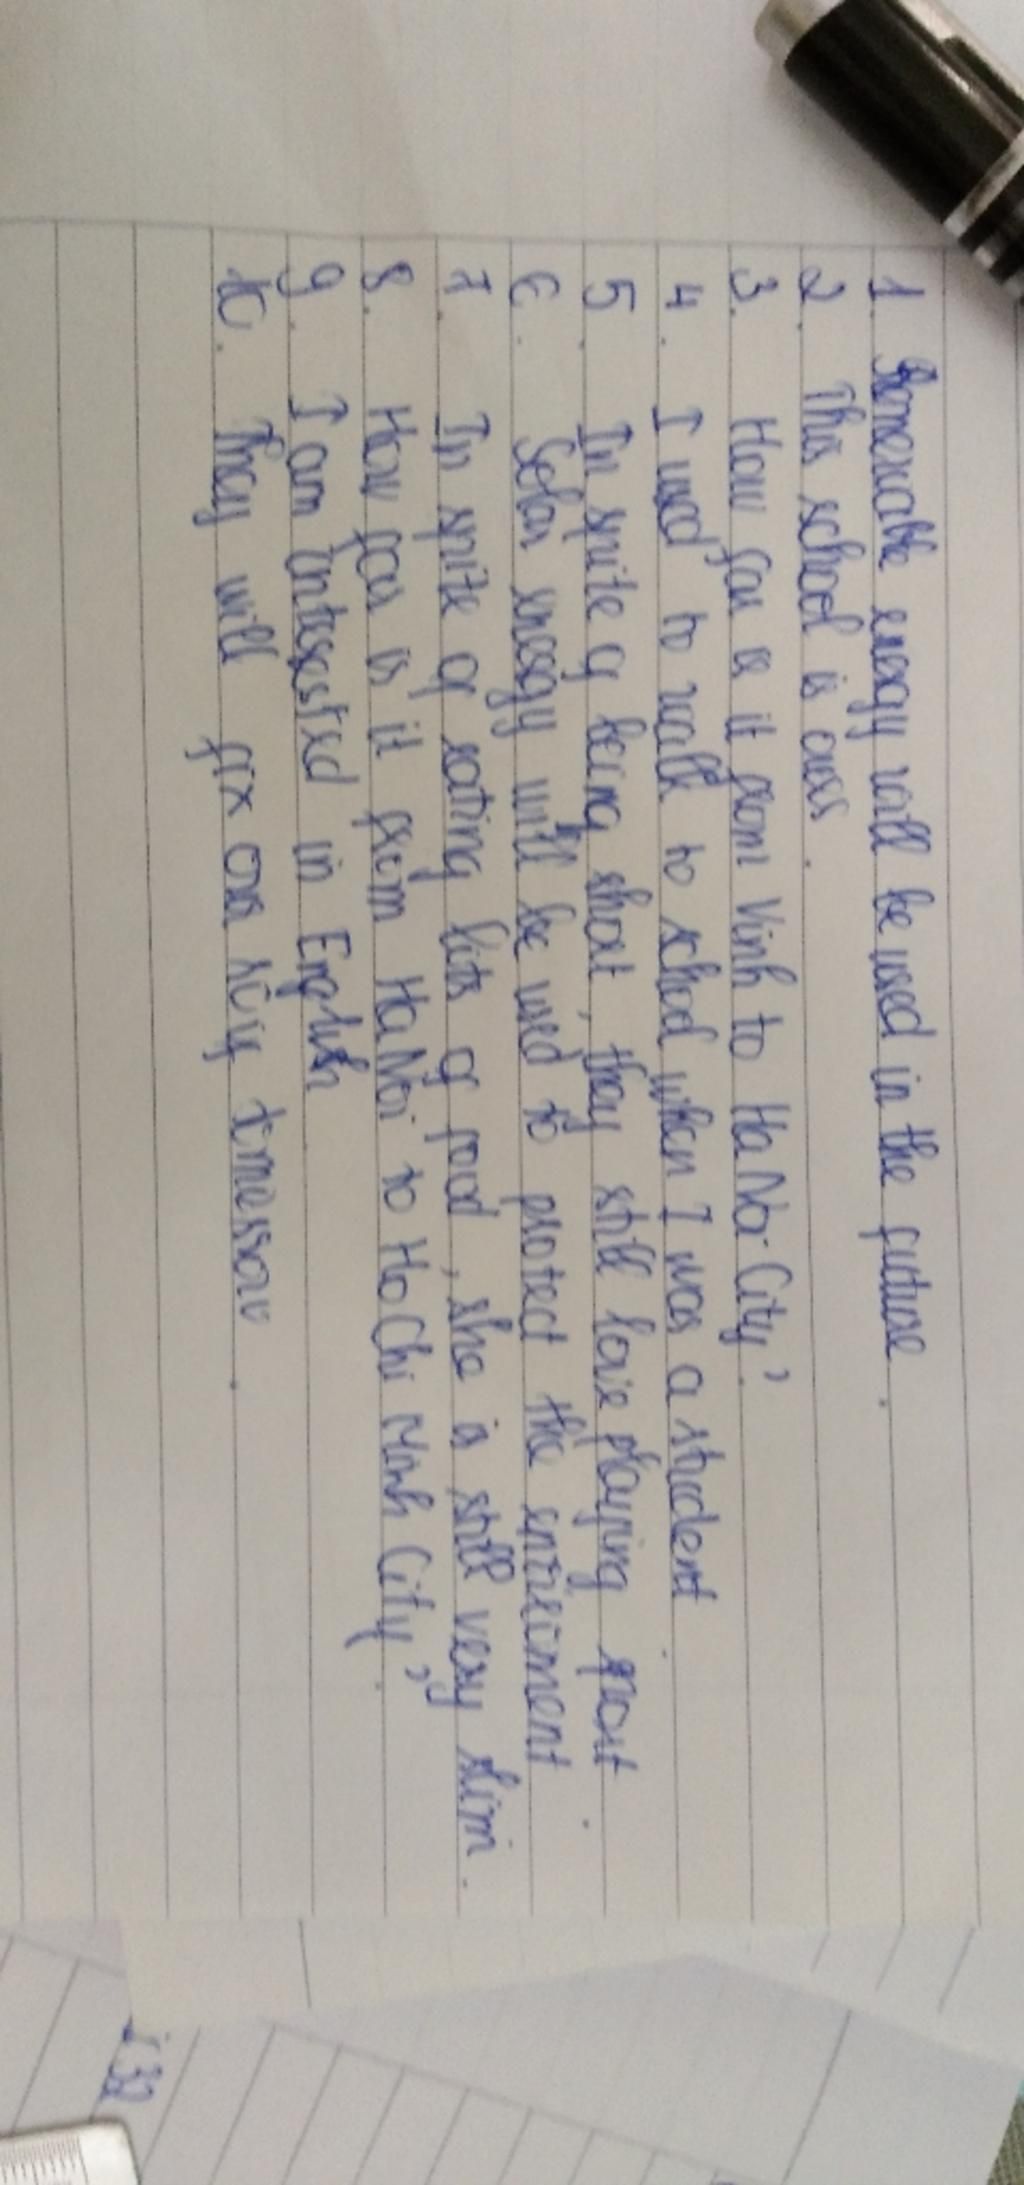 1. Renewable energy will be used in the future.
2. This school is ours.
3. How far is it from Vinh to Ha Noi City?
4. I used to walk to school when I was a student
5. In spite of being short, they still love playing sport.
6. Solar energy will be used to protect the enviroment
7. In spite of eating lots of food, she is still very slim.
8. How far is it from Ha Noi to Ho Chi Minh City?
9. I am interested in English
10. They will fix our tomorrow.
32